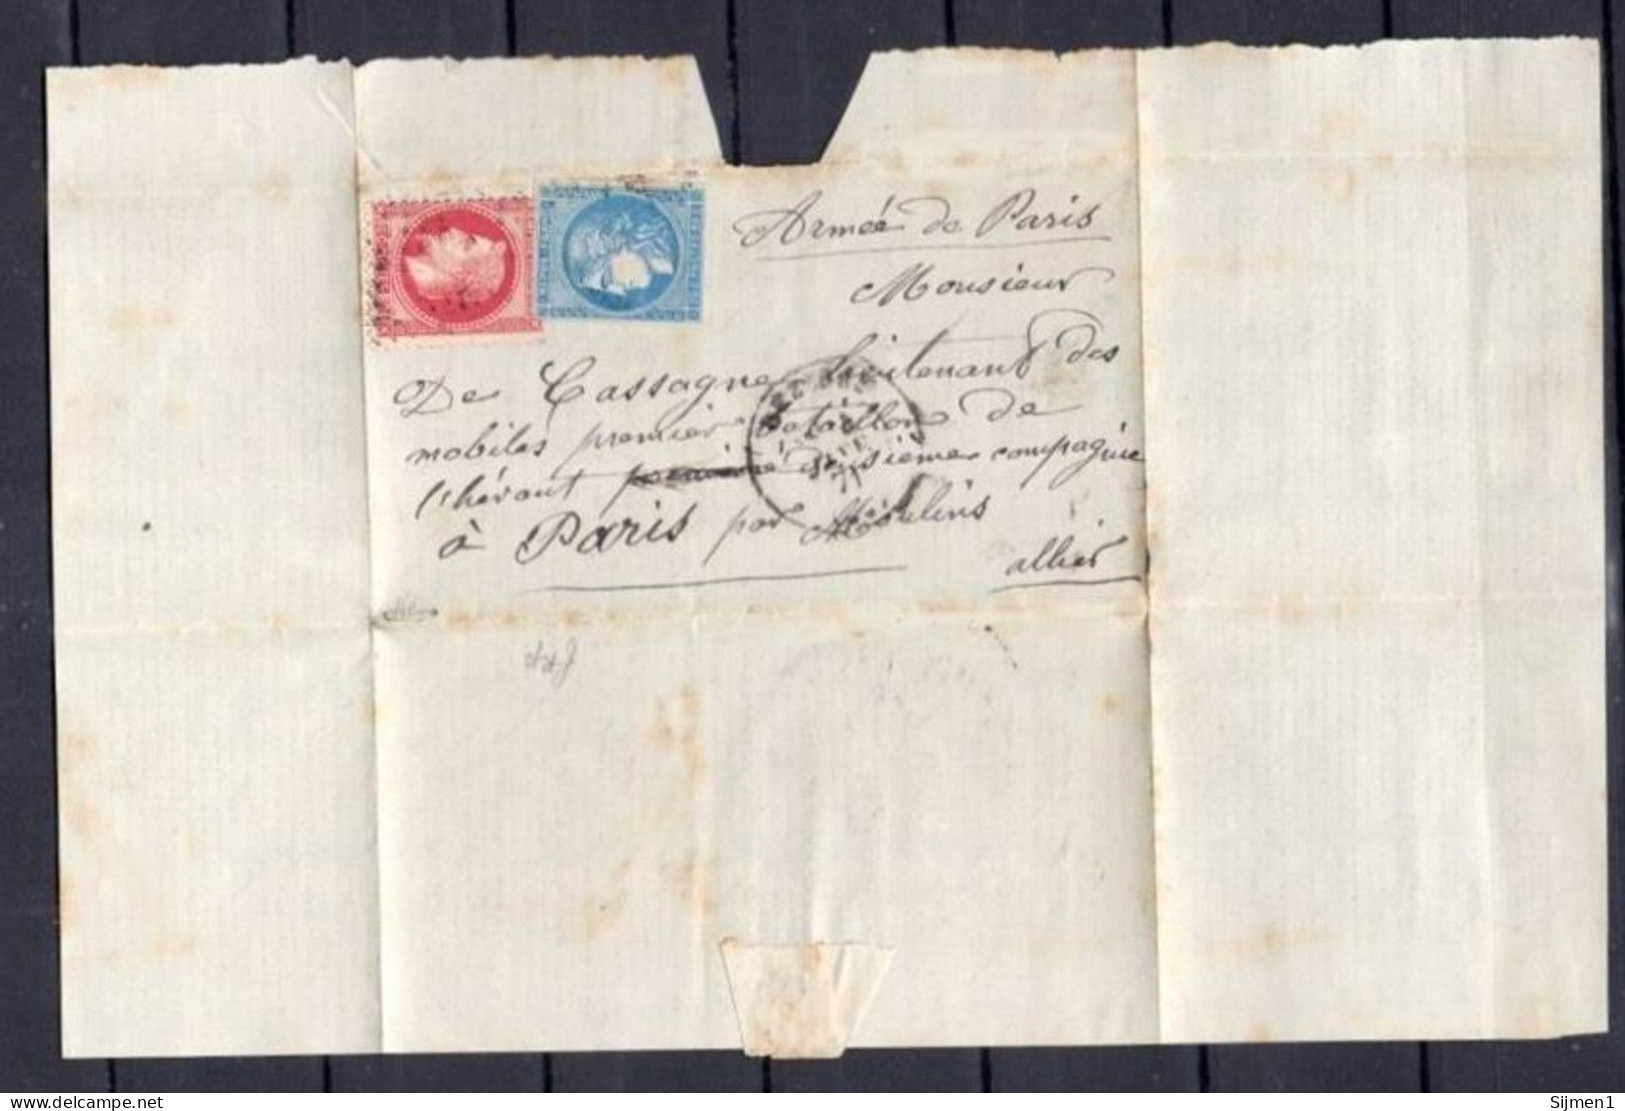 Armée de Paris
Monsieur
De Cassagne lieutenant des
mobiles premier bataillon de
l'hérault premiere deusième compagnie
à Paris par Moulins
allier
Sijmen1